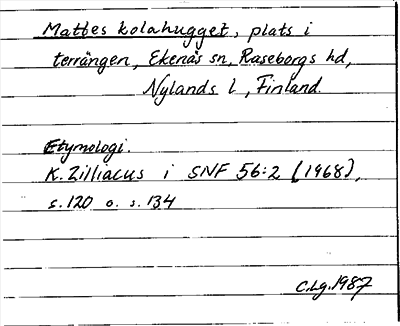 Mattes kolahugget, plats i
terrängen, Ekenäs sn, Raseborgs hd,
Nylands l, Finland.
Etymologi.
K. Zilliacus i SNF 56:2 (1968),
s. 120 o. s. 134
C.Lg. 1987